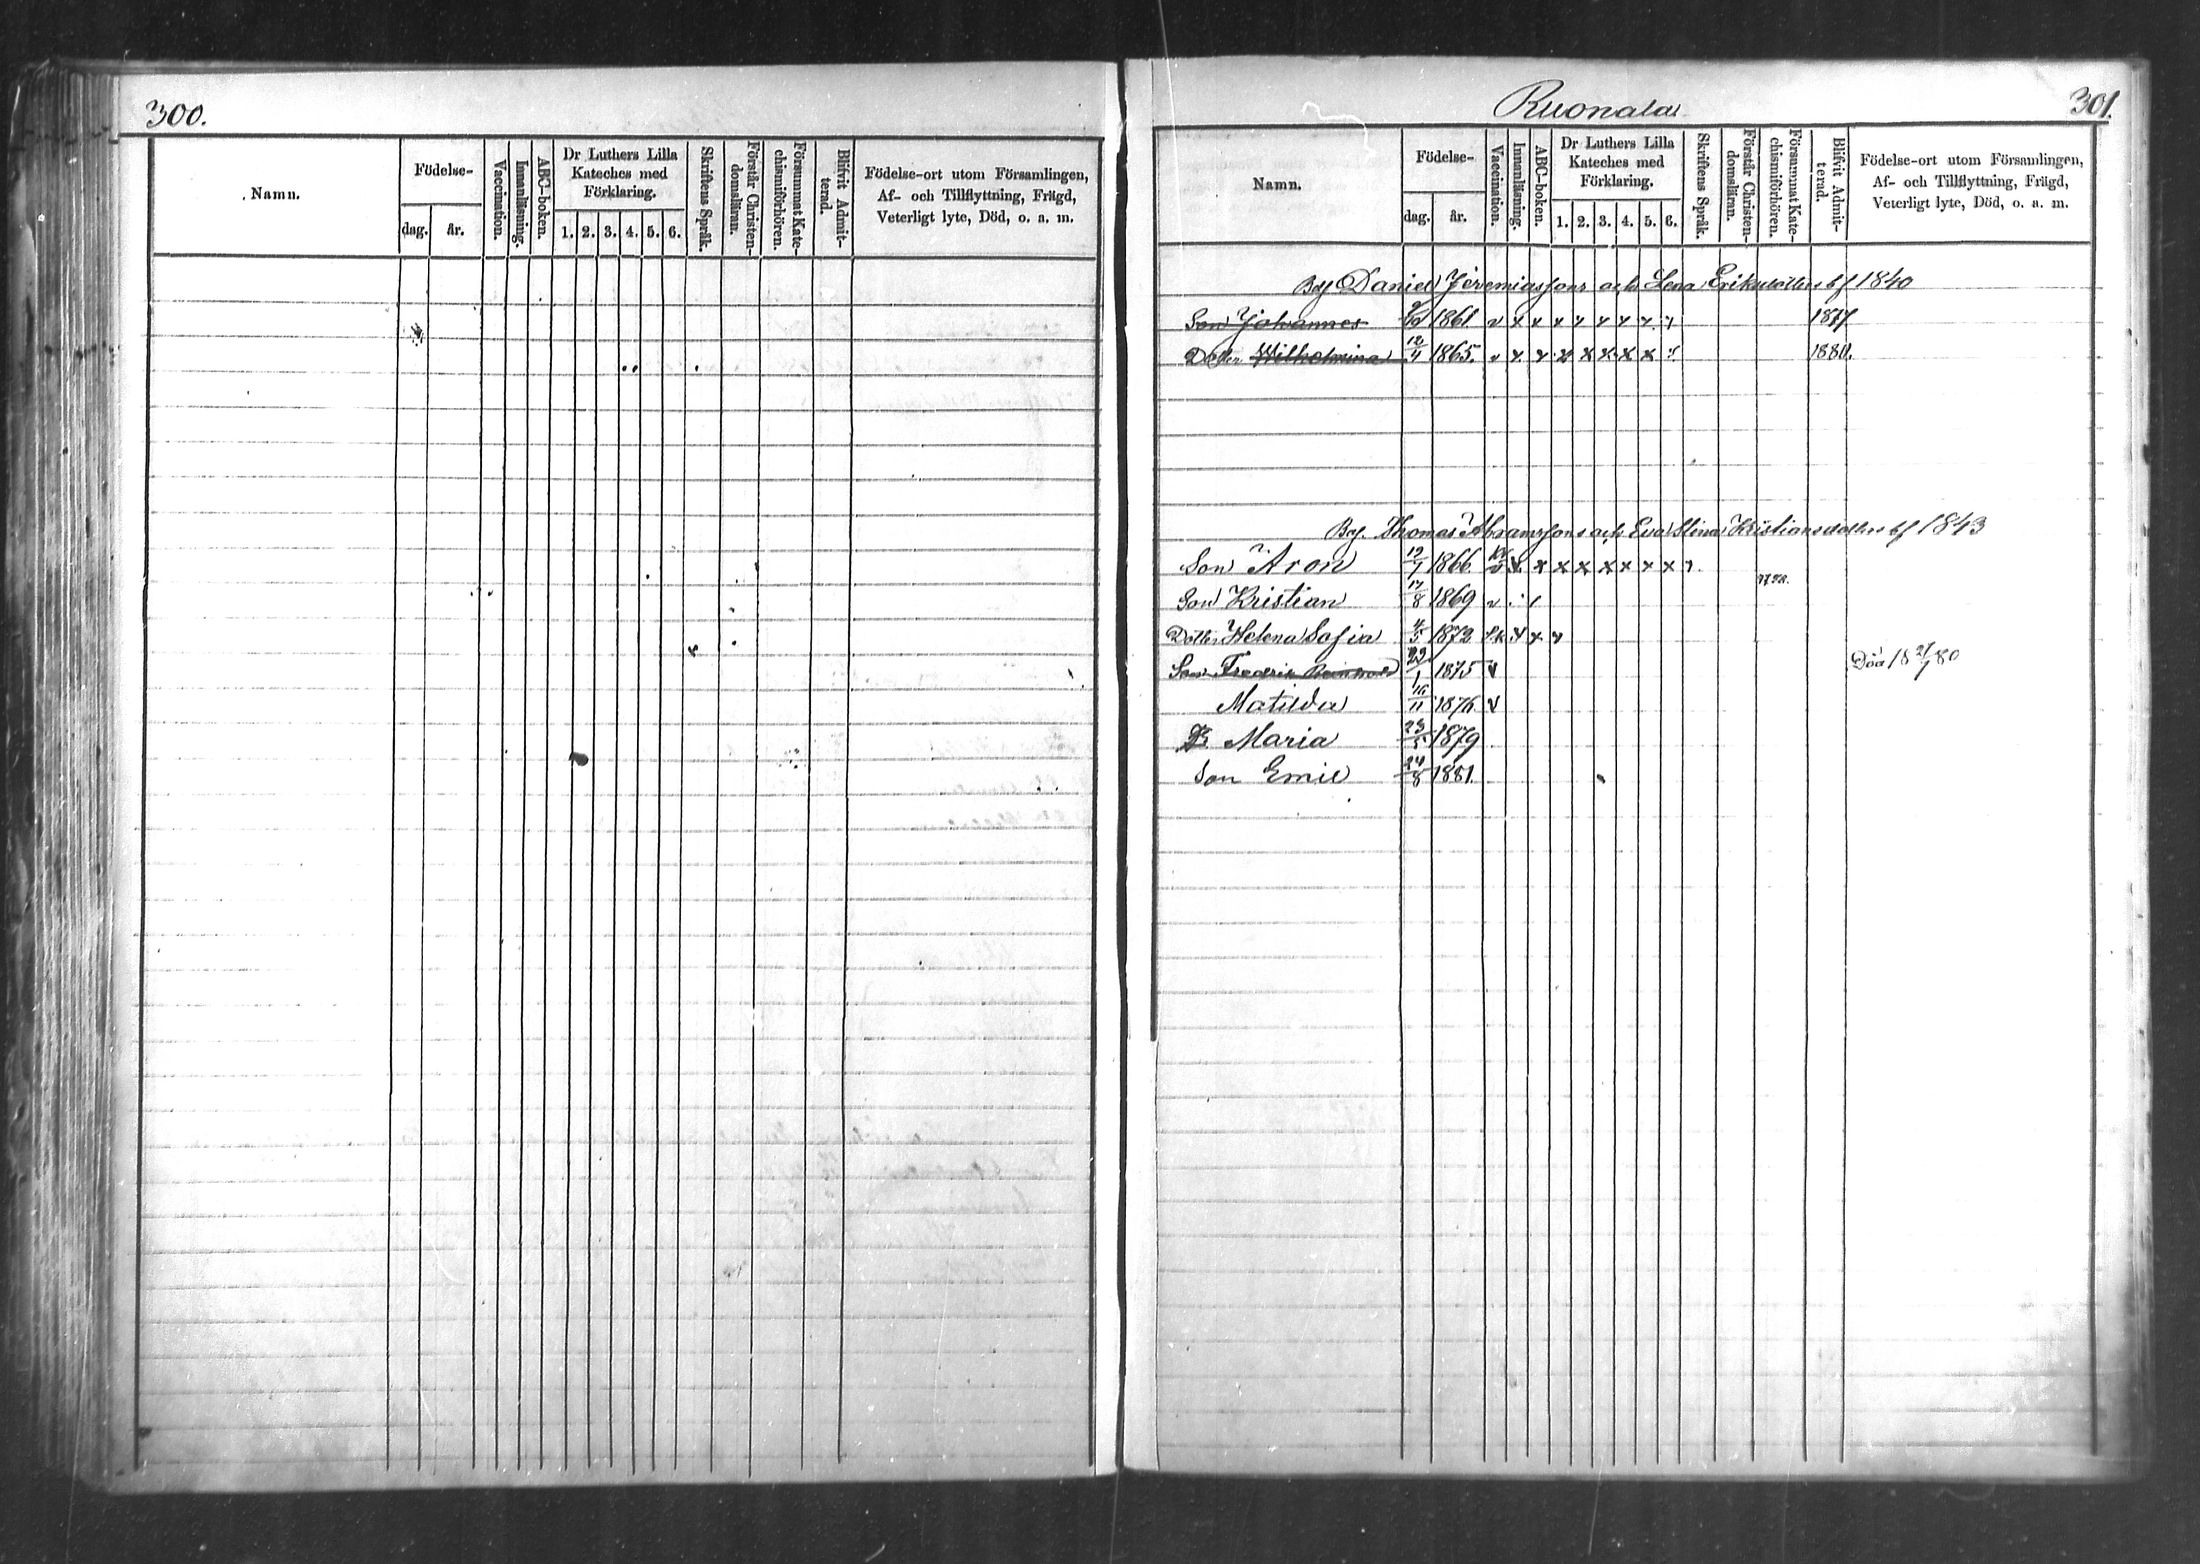 300.
Namn.
Födelse-
dag. år.
Vaccination.
Innanläsning.
ABC-boken.
Dr Luthers Lilla
Kateches med
Förklaring.
1. 2. 3. 4. 5. 6.
Skriftens Språk.
Förstår Christen-
domsläran.
Försummat Kate-
chismiförhören.
Blifvit Admit-
terad.
Födelse-ort utom Församlingen,
Af- och Tillflyttning, Frägd,
Veterligt lyte, Död, o. a. m.
Ruonala
301.
Namn.
Födelse-
dag. år.
Vaccination.
Innanläsning.
ABC-boken.
Dr Luthers Lilla
Kateches med
Förklaring.
1. 2. 3. 4. 5. 6.
Skriftens Språk.
Förstår Christen-
domsläran.
Försummat Kate-
chismiförhören.
Blifvit Admit-
terad.
Födelse-ort utom Församlingen,
Af- och Tillflyttning, Frägd,
Veterligt lyte, Död, o. a. m.
Daniel Jeremiassons och Lena Eriksdotters bf 1840
Son Johannes 1861 v x x x x x x x x 1877
Dotter Wilhelmina 12/11 1865. v x x x x x x x 1880.
By. Thomas Abramssons och Eva Stina Kristiansdotters bf 1843
Son Aron 1866 x x x x x x x x
Son Kristian 17/8 1869 v
Dotter Helena Sofia 4/5 1872 x x x
Son Fredrik 1875 v Död 18 21/1 80
Matilda 16/11 1876 v
D Maria 23/5 1879
Son Emil 24/8 1881.